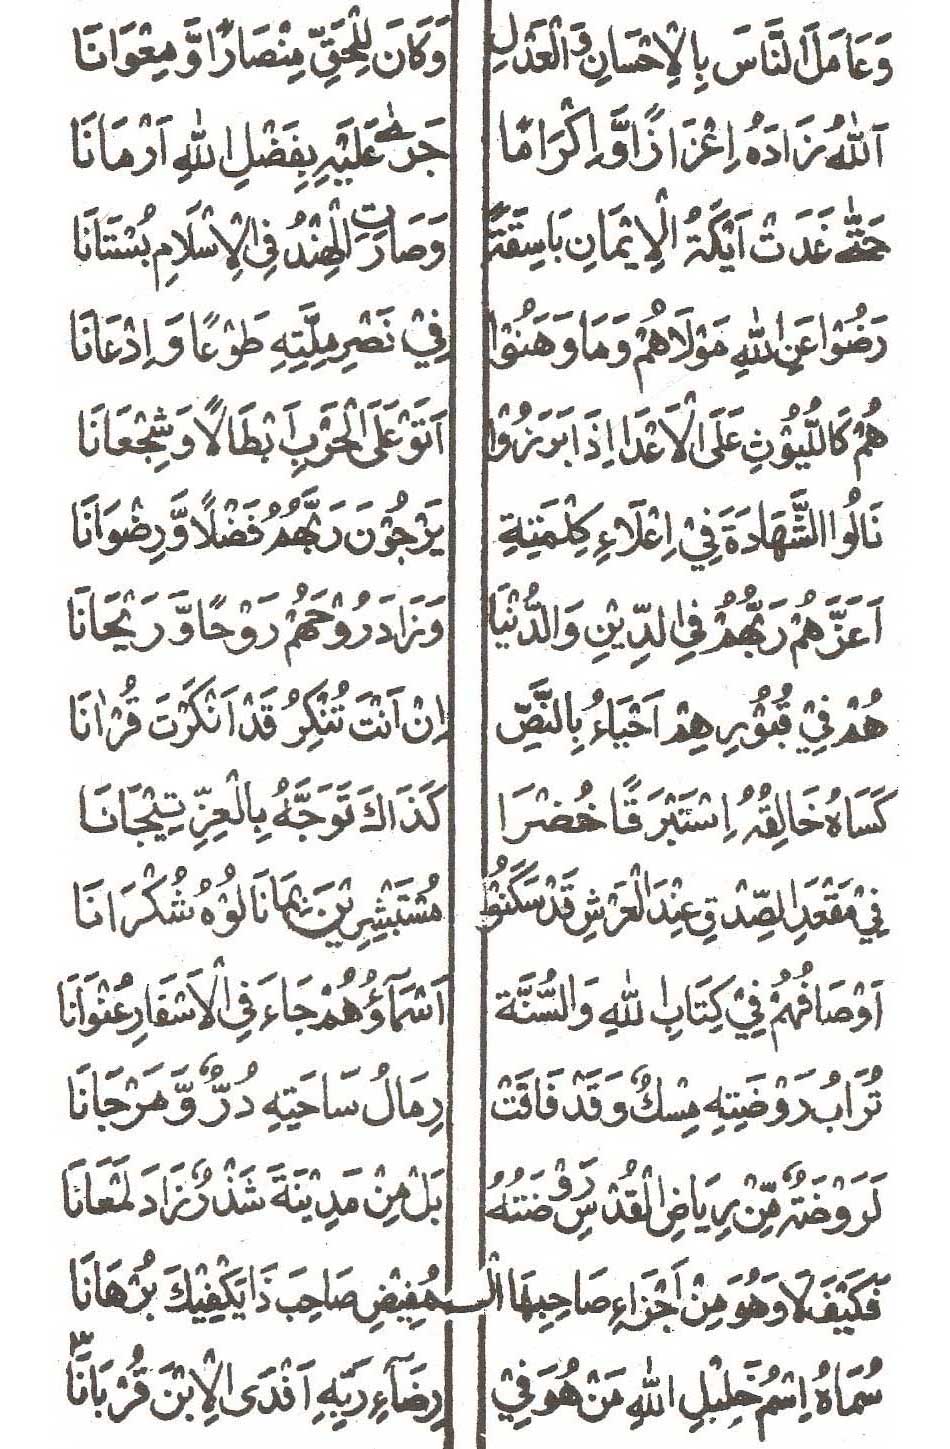 وَعَامَلَ النَّاسَ بِالْاِحْسَانِ وَالْعَدْلِ وَكَانَ لِلْحَقِّ مِنْصَارًا وَّ مِعْوَانَا
اَللهُ زَادَهُ اِعْزَازًا وَّ اِكْرَامًا جَرٰى عَلَيْهِ بِفَضْلِ اللهِ اَزْمَانَا
حَتّٰى غَدَتْ اَيْكَةُ الْاِيْمَانِ بَاسِقَةً وَصَارَتِ الْهِنْدُ فِي الْاِسْلَامِ بُسْتَانَا
رَضُوْا عَنِ اللهِ مَوْلَاهُمْ وَمَا وَهَنُوْا فِيْ نَصْرِ مِلَّتِهِ طَوْعًا وَ اِذْعَانَا
هُمْ كَاللُّيُوْثِ عَلَى الْاَعْدَا اِذَا بَرَزُوْا اَتَوْ عَلَى الْحَرْبِ اَبْطَالًا وَ شِجْعَانَا
نَالُوا الشَّهَادَةَ فِيْ اِعْلَاءِ كِلْمَتِهِ يَرْجُوْنَ رَبَّهُمُ فَضْلًا وَّ رِضْوَانَا
اَعَزَّهُمْ رَبُّهُمْ فِي الدِّيْنِ وَالدُّنْيَا وَزَادَ رُوْحَهُمْ رَوْحًا وَّ رَيْحَانَا
هُمْ فِيْ قُبُوْرِهِمْ اَحْيَاءُ بِالنَّصِّ اِنْ اَنْتَ تُنْكِرُ قَدْ اَنْكَرْتَ قُرْاٰنَا
كَسَاهُ خَالِقُهُ اِسْتَبْرَقًا خُضْرَا كَذَاكَ تَوَجَّهُ بِالْعِزِّ تِيْجَانَا
فِيْ مَقْعَدِ الصِّدْقِ عِنْدَ الْعَرْشِ قَدْ سَكَنُوْا مُسْتَبْشِرِيْنَ بِمَا نَالُوْهُ شُكْرَانَا
اَوْصَافُهُمْ فِيْ كِتَابِ اللهِ وَالسُّنَّة اَسْمَآؤُهُمْ جَاءَ فِي الْاَسْفَارِ عُنْوَانَا
تُرَابُ رَوْضَتِهِ مِسْكٌ وَقَدْ فَاقَتْ رِمَالُ سَاحَتِهِ دُرٌّ وَّ مَرْجَانَا
لَرَوْضَةٌ مِّنْ رِيَاضِ الْقُدْسِ رَوْضَتُهُ بَلْ مِنْ مَدِيْنَةَ شَذْرٌ زَادَ لَمَعَانَا
فَكَيْفَ لَا وَهُوَ مِنْ اَجْزَاءِ صَاحِبِهَا الْمُفِيْضِ صَاحِبَ ذَا يَكْفِيْكَ بُرْهَانَا
سُمَاهُ اِسْمُ خَلِيْلِ اللهِ مَنْ هُوَ فِيْ رِضَآءِ رَبِّهِ اَفْدَى الْاِبْنَ قُرْبَانًا ٣